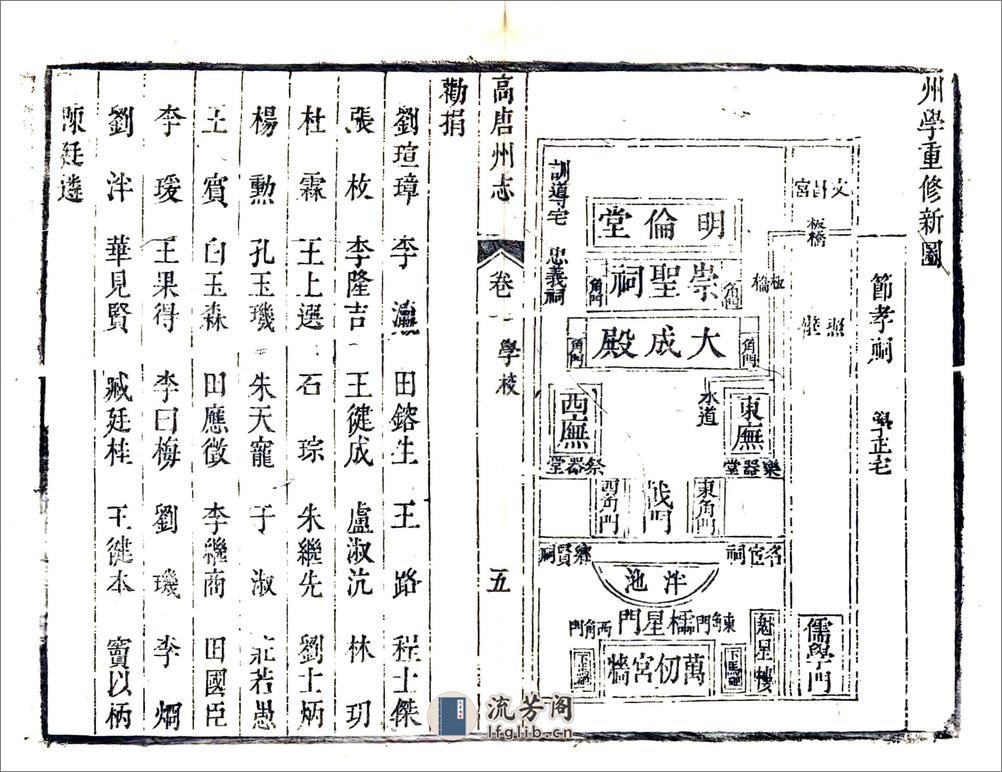 州學重修新圖
節孝祠 學正宅
文昌宮
板橋
板橋
照壁
儒學門
訓導宅 忠義祠
明倫堂
崇聖祠
角門
角門
大成殿
角門
角門
東廡
西廡
水道
樂器堂
祭器堂
東角門
戟門
西角門
名宦祠
鄉賢祠
泮池
魁星樓
東角門
櫺星門
西角門
下馬碑
萬仞宮牆
高唐州志
卷
學校
五
勸捐
劉瑄璋 李 田鎔生 王路 程士傑
張枚 李隆吉 王健成 盧淑沆 林玥
杜霖 王上選 石琮 朱繼先 劉士炳
楊勳 孔玉璣 朱天寵 于淑 莊若愚
王賓 白玉森 田應徵 李繼商 田國臣
李瑗 王果得 李曰梅 劉璣 李烱
劉泮 華見賢 臧廷桂 王健本 竇以柄
陳廷遴
流芳阁
lfglib.cn